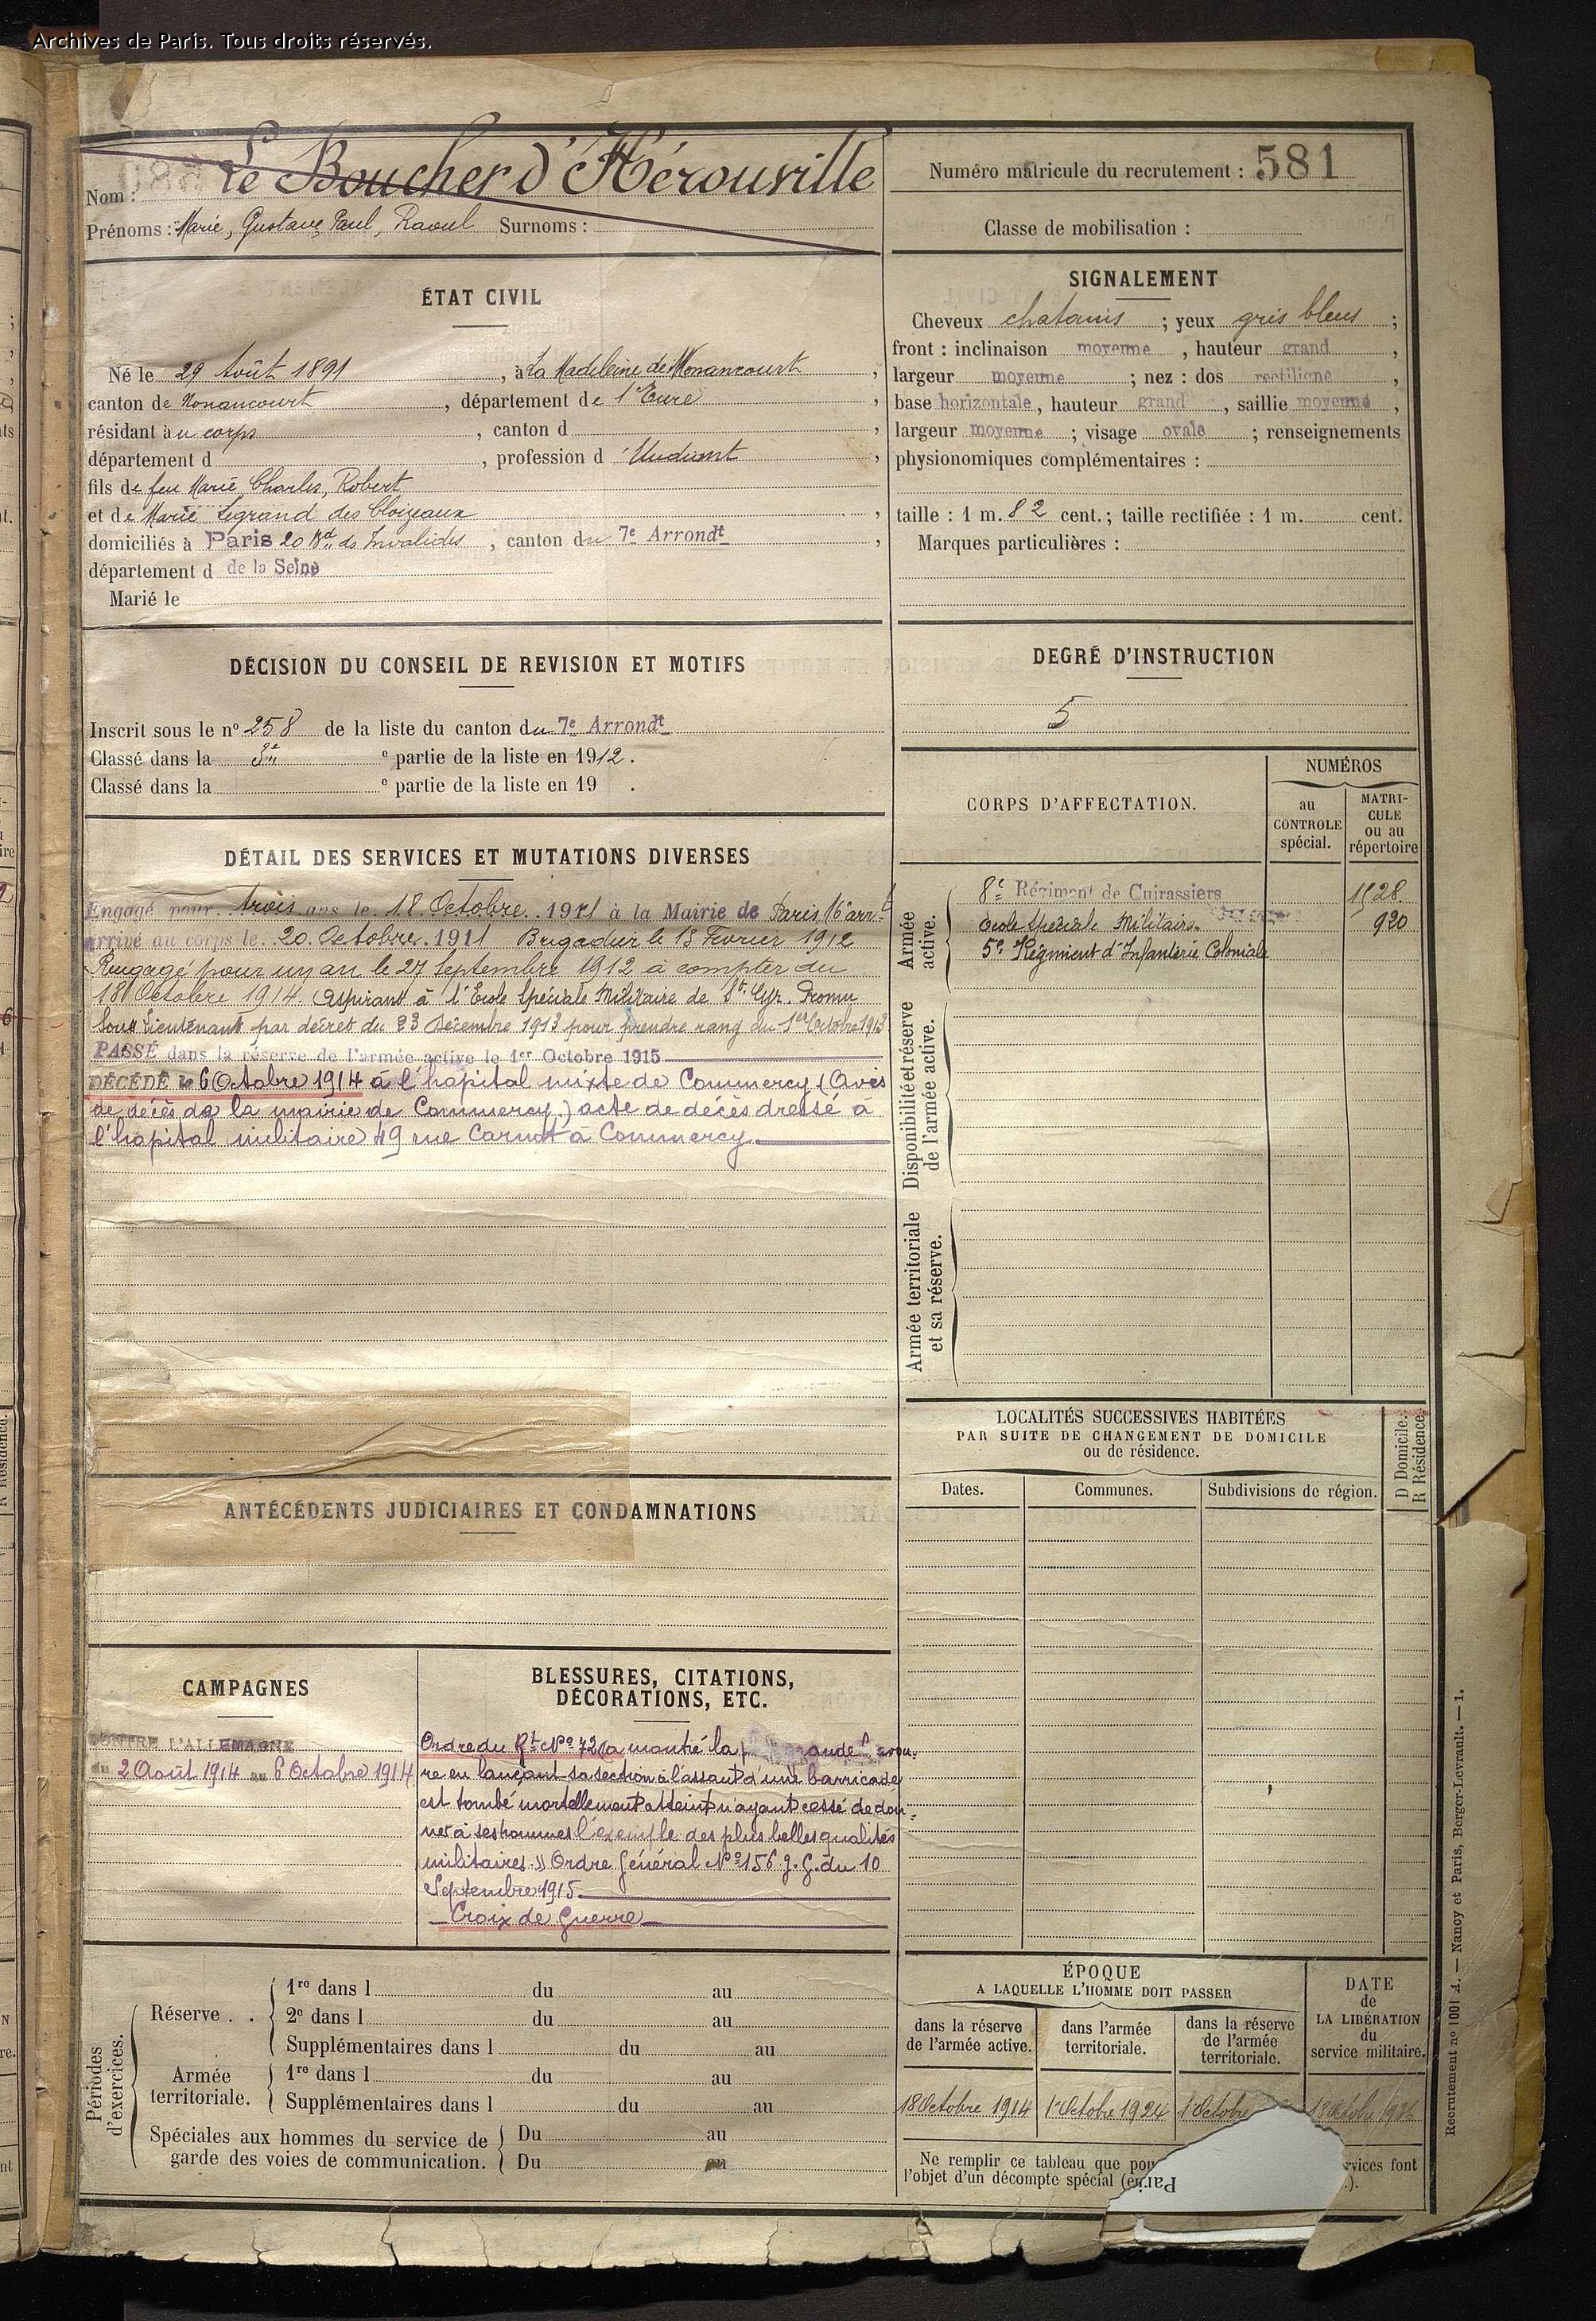 Archives de Paris. Tous droits réservés.
Nom : Le Boucher d'Hérouville
Prénoms : Marie, Gustave, Paul, Raoul Surnoms :
Numéro matricule du recrutement : 581
Classe de mobilisation :
ÉTAT CIVIL
Né le 29 Août 1891, à La Madeleine de Nonancourt,
canton de Nonancourt, département de l'Eure,
résidant au corps, canton d ,
département d , profession d' Etudiant,
fils de feu Marie, Charles, Robert
et de Marie Legrand des Cloizeaux,
domiciliés à Paris 20 Bd des Invalides, canton du 7e Arrondt,
département d de la Seine
Marié le
SIGNALEMENT
Cheveux chatains ; yeux gris bleus ;
front : inclinaison moyenne, hauteur grand,
largeur moyenne ; nez : dos rectiligne,
base horizontale, hauteur grand, saillie moyenne,
largeur moyenne ; visage ovale ; renseignements
physionomiques complémentaires :
taille : 1 m. 82 cent. ; taille rectifiée : 1 m. cent.
Marques particulières :
DÉCISION DU CONSEIL DE REVISION ET MOTIFS
Inscrit sous le no 258 de la liste du canton du 7e Arrondt
Classé dans la 3e e partie de la liste en 1912.
Classé dans la e partie de la liste en 19 .
DEGRÉ D'INSTRUCTION
5
DÉTAIL DES SERVICES ET MUTATIONS DIVERSES
Engagé pour trois ans le 18 Octobre 1911 à la Mairie de Paris, 16e arrt
arrivé au corps le 20 Octobre 1911 Brigadier le 13 Février 1912
Rengagé pour un an le 27 Septembre 1912 à compter du
18 Octobre 1914. Aspirant à l'Ecole Spéciale Militaire de St. Cyr. Promu
Sous Lieutenant par décret du 23 Décembre 1913 pour prendre rang du 1er Octobre 1913
PASSÉ dans la réserve de l'armée active le 1er Octobre 1915
DÉCÉDÉ le 6 Octobre 1914 à l'hopital mixte de Commercy (Avis
de décès de la mairie de Commercy.) acte de décès dressé à
l'hopital militaire 49 rue Carnot à Commercy.
CORPS D'AFFECTATION.
NUMÉROS
au CONTROLE spécial.
MATRICULE ou au répertoire
Armée active.
8e Régiment de Cuirassiers 1528
Ecole Spéciale Militaire 920
5e Régiment d'Infanterie Coloniale
Disponibilité et réserve de l'armée active.
Armée territoriale et sa réserve.
LOCALITÉS SUCCESSIVES HABITÉES
PAR SUITE DE CHANGEMENT DE DOMICILE
ou de résidence.
D Domicile.
R Résidence.
Dates. Communes. Subdivisions de région.
ANTÉCÉDENTS JUDICIAIRES ET CONDAMNATIONS
CAMPAGNES
CONTRE L'ALLEMAGNE
du 2 Août 1914 au 6 Octobre 1914
BLESSURES, CITATIONS,
DÉCORATIONS, ETC.
Ordre du Rt No 72 "a montré la grande bravou-
re en lançant sa section à l'assaut d'une barricade
est tombé mortellement atteint n'ayant cessé de don-
ner à ses hommes l'exemple des plus belles qualités
militaires." Ordre Général No 156 g. G. du 10
Septembre 1915
Croix de Guerre
Périodes d'exercices.
Réserve . .
1re dans l du au
2e dans l du au
Supplémentaires dans l du au
Armée territoriale.
1re dans l du au
Supplémentaires dans l du au
Spéciales aux hommes du service de
garde des voies de communication.
Du au
Du au
ÉPOQUE
A LAQUELLE L'HOMME DOIT PASSER
dans la réserve de l'armée active.
dans l'armée territoriale.
dans la réserve de l'armée territoriale.
DATE de LA LIBÉRATION du service militaire.
18 Octobre 1914 1er Octobre 1924 1 Octobre
Ne remplir ce tableau que pour
l'objet d'un décompte spécial (
services font
Paris
Recrutement no 1001 A. — Nancy et Paris, Berger-Levrault. — 1.